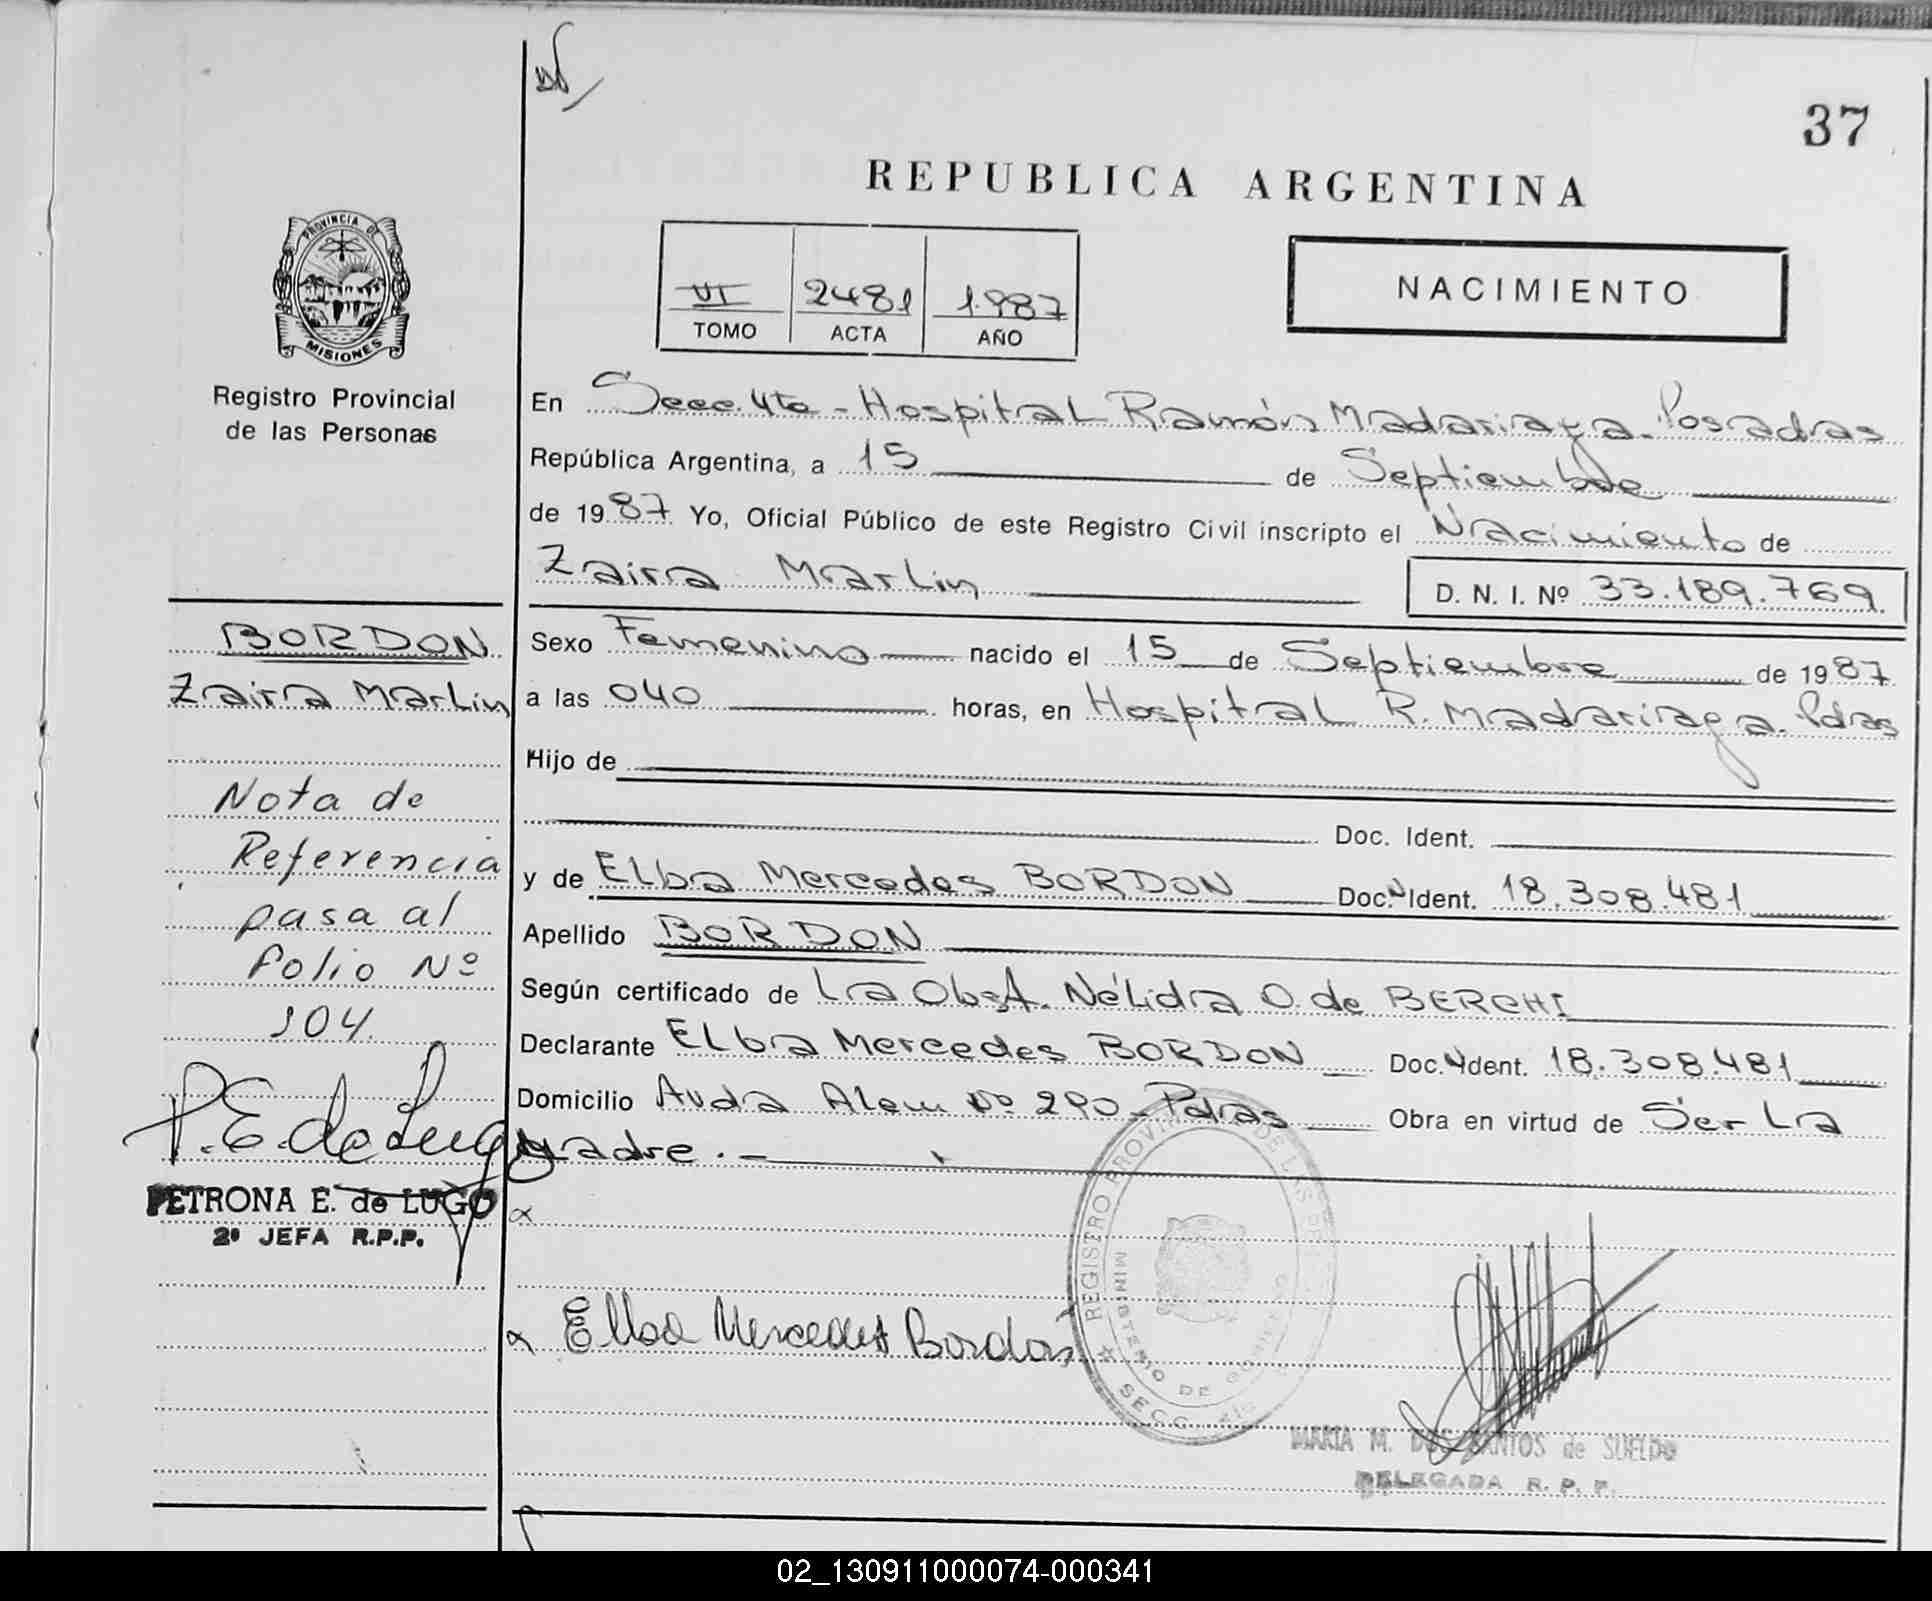 37
REPUBLICA ARGENTINA
PROVINCIA DE
MISIONES
Registro Provincial
de las Personas
VI 2481 1.987
TOMO ACTA AÑO
NACIMIENTO
En Secc. 4ta - Hospital Ramón Madariaga. Posadas
República Argentina, a 15 de Septiembre
de 1987 Yo, Oficial Público de este Registro Civil inscripto el Nacimiento de
Zaira Marlin
D. N. I. Nº 33.189.769.
BORDON
Zaira Marlin
Nota de
Referencia
pasa al
folio Nº
104.
P.E. de Lugo
PETRONA E. de LUGO
2º JEFA R.P.P.
Sexo Femenino nacido el 15 de Septiembre de 1987
a las 040 horas, en Hospital R. Madariaga. Pdas
Hijo de
Doc. Ident.
y de Elba Mercedes BORDON Doc. Ident. 18.308.481
Apellido BORDON
Según certificado de La Obst. Nélida O. de BERCHI
Declarante Elba Mercedes BORDON Doc. Ident. 18.308.481
Domicilio Avda Alem Nº 290 - Pdas Obra en virtud de Ser La
Madre. -
Elba Mercedes Bordón
REGISTRO PROVINCIAL DE LAS
MINISTERIO DE GOBIERNO
SECC. 4ta
MARIA M. DOS SANTOS de SUELDO
DELEGADA R. P. P.
02_130911000074-000341